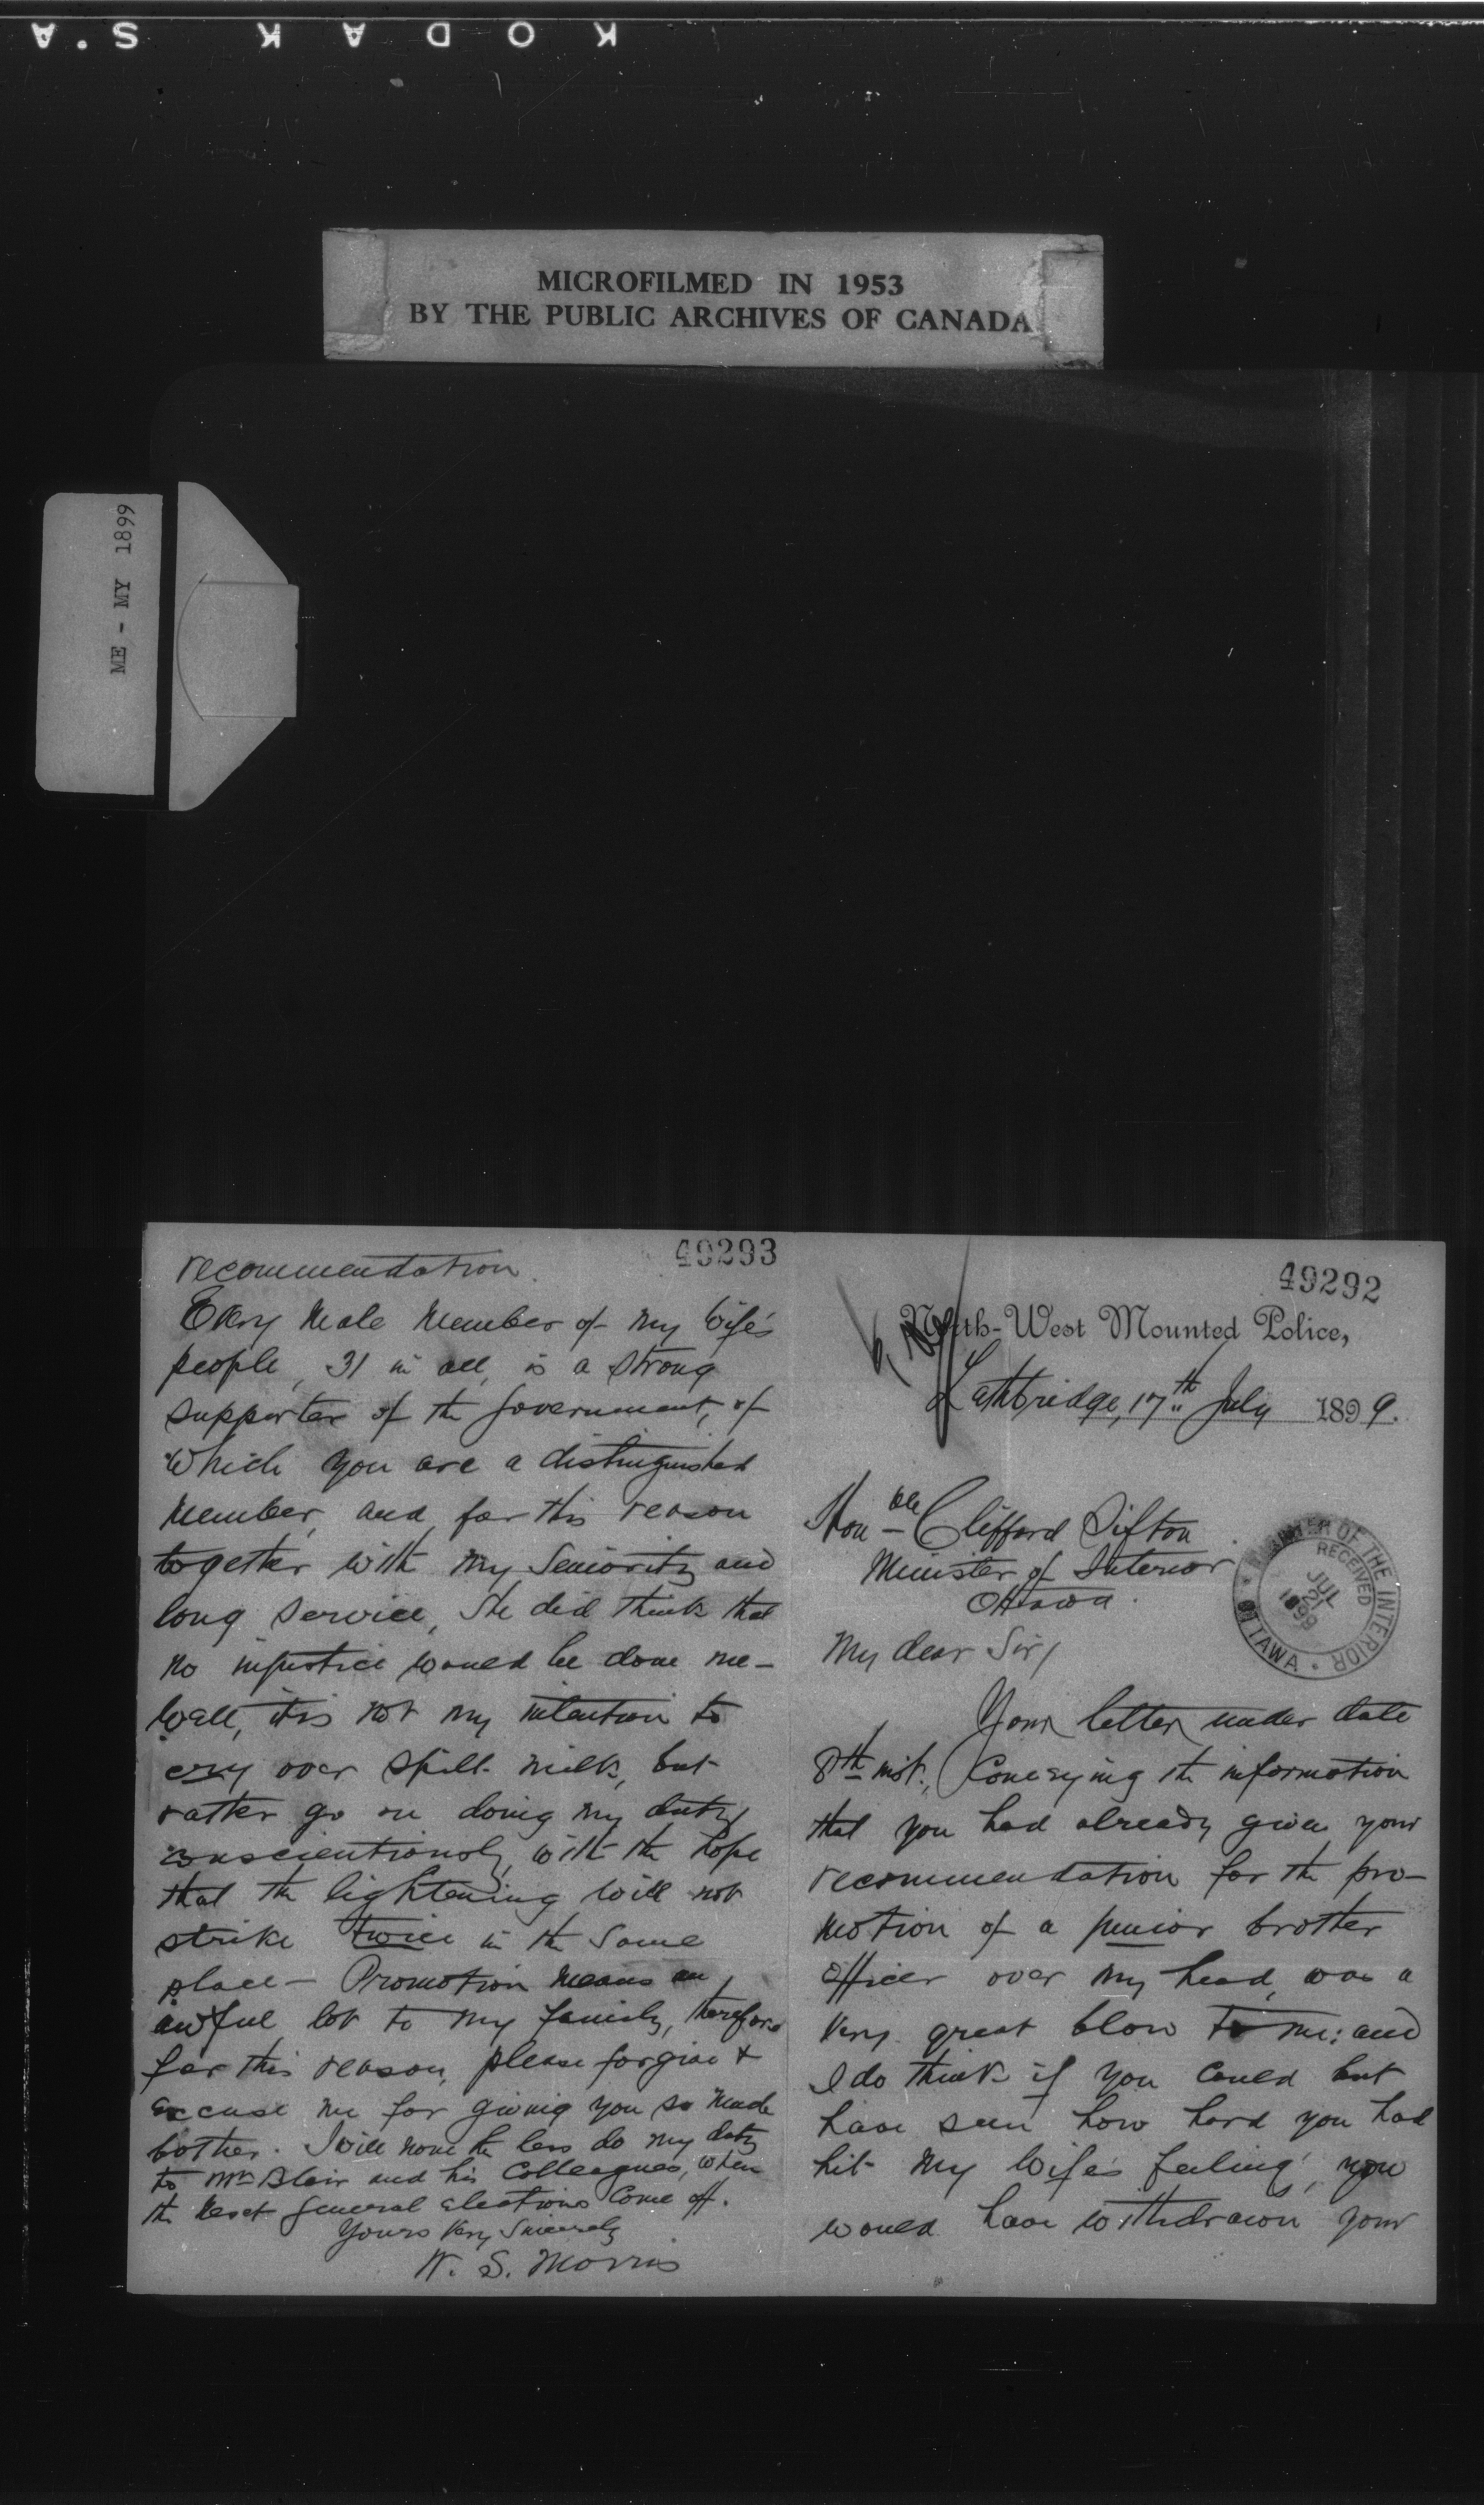 KODAK S.A
MICROFILMED IN 1953
BY THE PUBLIC ARCHIVES OF CANADA
ME - MY 1899
49292
North-West Mounted Police,
Lethbridge, 17th July 1899.
Honble Clifford Sifton
Minister of Interior
Ottawa.
My dear Sir/
Your letter under date
8th inst., Conveying the information
that you had already given your
recommendation for the pro-
motion of a junior brother
Officer over my head, was a
very great blow to me: and
I do think if you could but
have seen how hard you had
hit my wife's feeling, you
would have withdrawn your
MINISTER OF THE INTERIOR
RECEIVED
JUL
21
1899
OTTAWA
49293
recommendation.
Every Male Member of my Wife's
people, 31 in all, is a strong
supporter of the Government, of
Which you are a distinguished
Member, and for this reason
together with my Seniority and
long service, She did think that
no injustice would be done me -
Well, it is not my intention to
cry over spilt milk, but
rather go on doing my duty
conscientiously, with the hope
that the lightening will not
strike twice in the same
place - Promotion means an
awful lot to my family, therefore
for this reason, please forgive &
excuse me for giving you so much
bother. I will none the less do my duty
to Mr Blair and his Colleagues, when
the next general elections come off.
Yours Very Sincerely
W. S. Morris